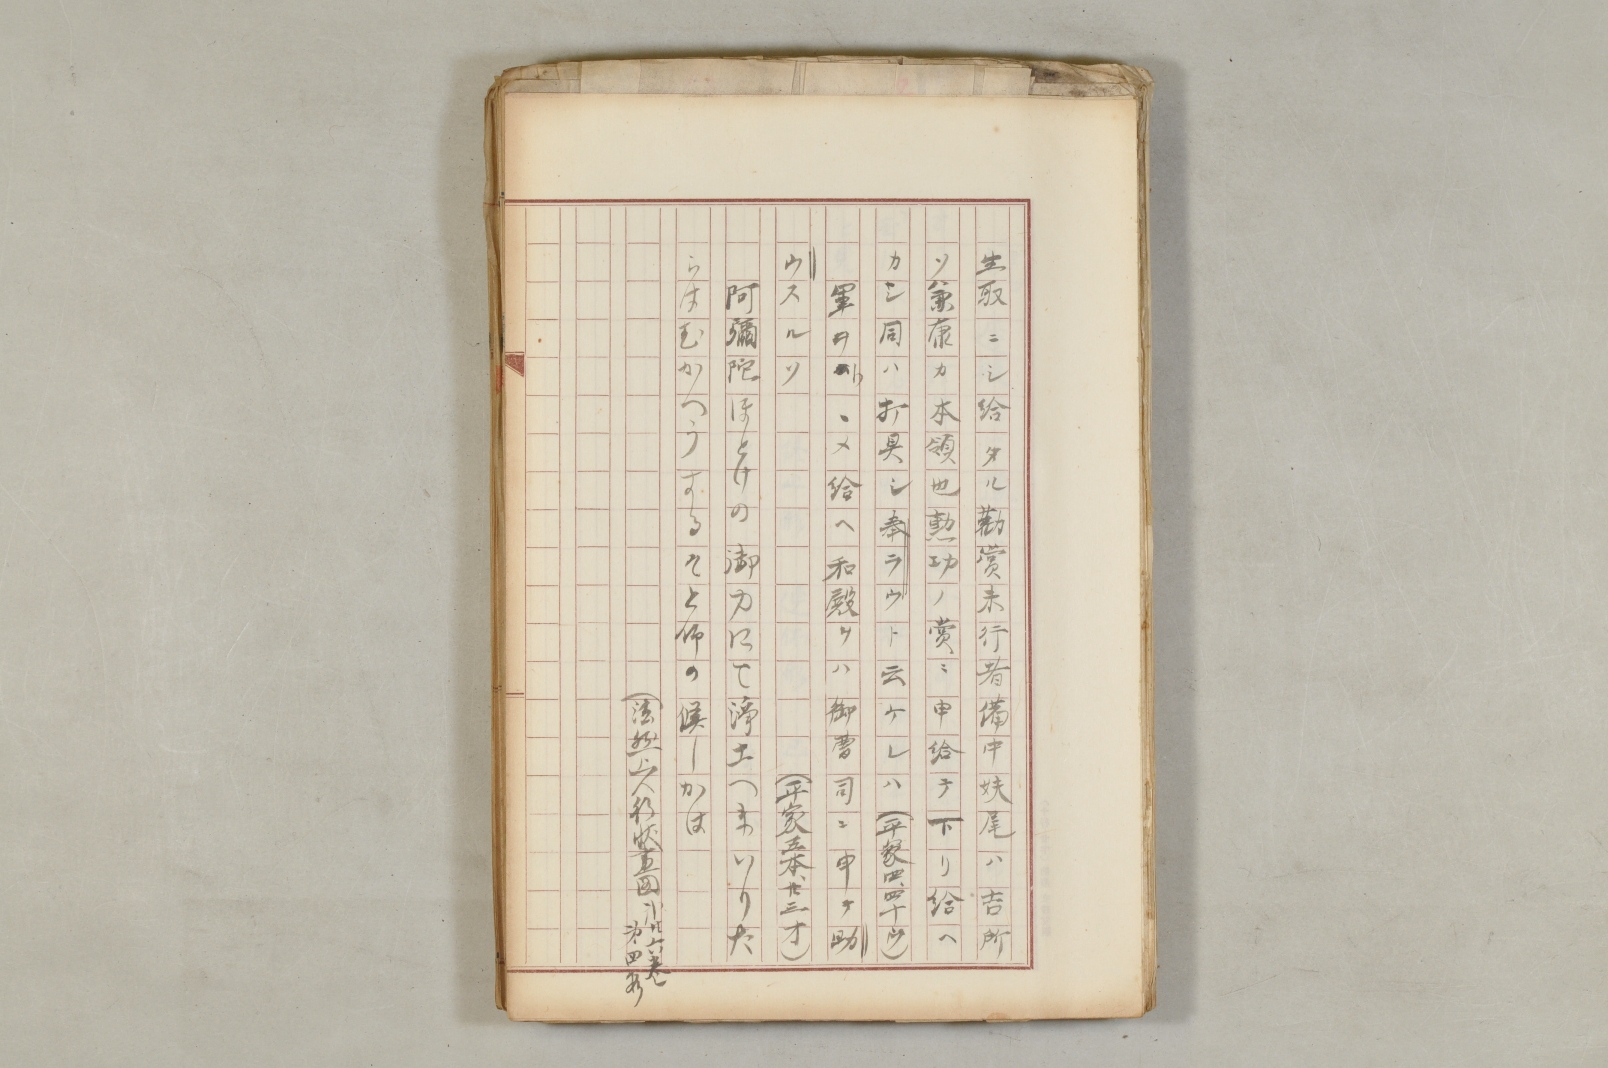 生取ニシ給タル勸賞未行者備中妹尾ハ吉所
ソ兼康カ本領也勲功ノ賞ニ申給テ下リ給ヘ
カシ同ハ打具シ奉ラウト云ケレハ(平家四、四十ウ)
軍ヲ、メ給ヘ和殿ヲハ御曹司ニ申テ助
ウスルソ(平家五本、廿三オ)
阿彌陀ほとけの御力にて浄土へまいりた
らはむかへうするそと仰の候しかは
(法然上人行状畫圖
第四段